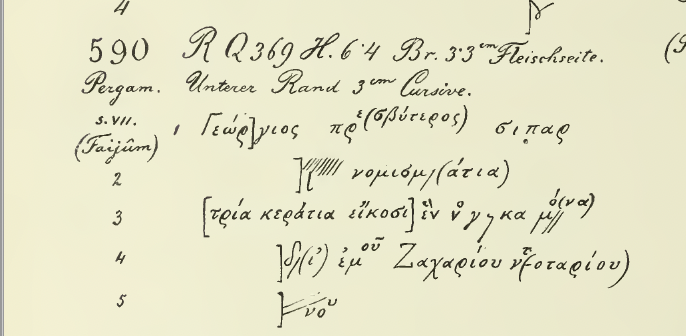 4
590 R Q 369 H. 6·4 Br. 3·3 cm Fleischseite.
Pergam. Unterer Rand 3 cm Cursive.
s. VII.
(Faijûm)
1 Γεώρ]γιος πρε(σβύτερος) σιπαρ
2 ] νομισμ/(άτια)
3 [τρία κεράτια εἴκοσι] ἓν ν̊ γ κα μό(να)
4 ]δ/(ι’) ἐμοῦ Ζαχαρίου ντ(οταρίου)
5 ] νου